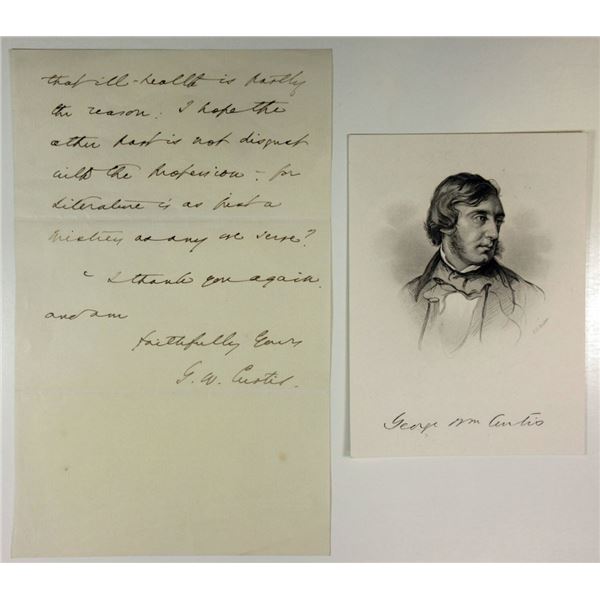 that ill-health is partly
the reason. I hope the
other part is not disgust
with the Profession - for
Literature is as just a
Mistress as any we serve?
I thank you again
and am
Faithfully Yours
G. W. Curtis.
George Wm Curtis